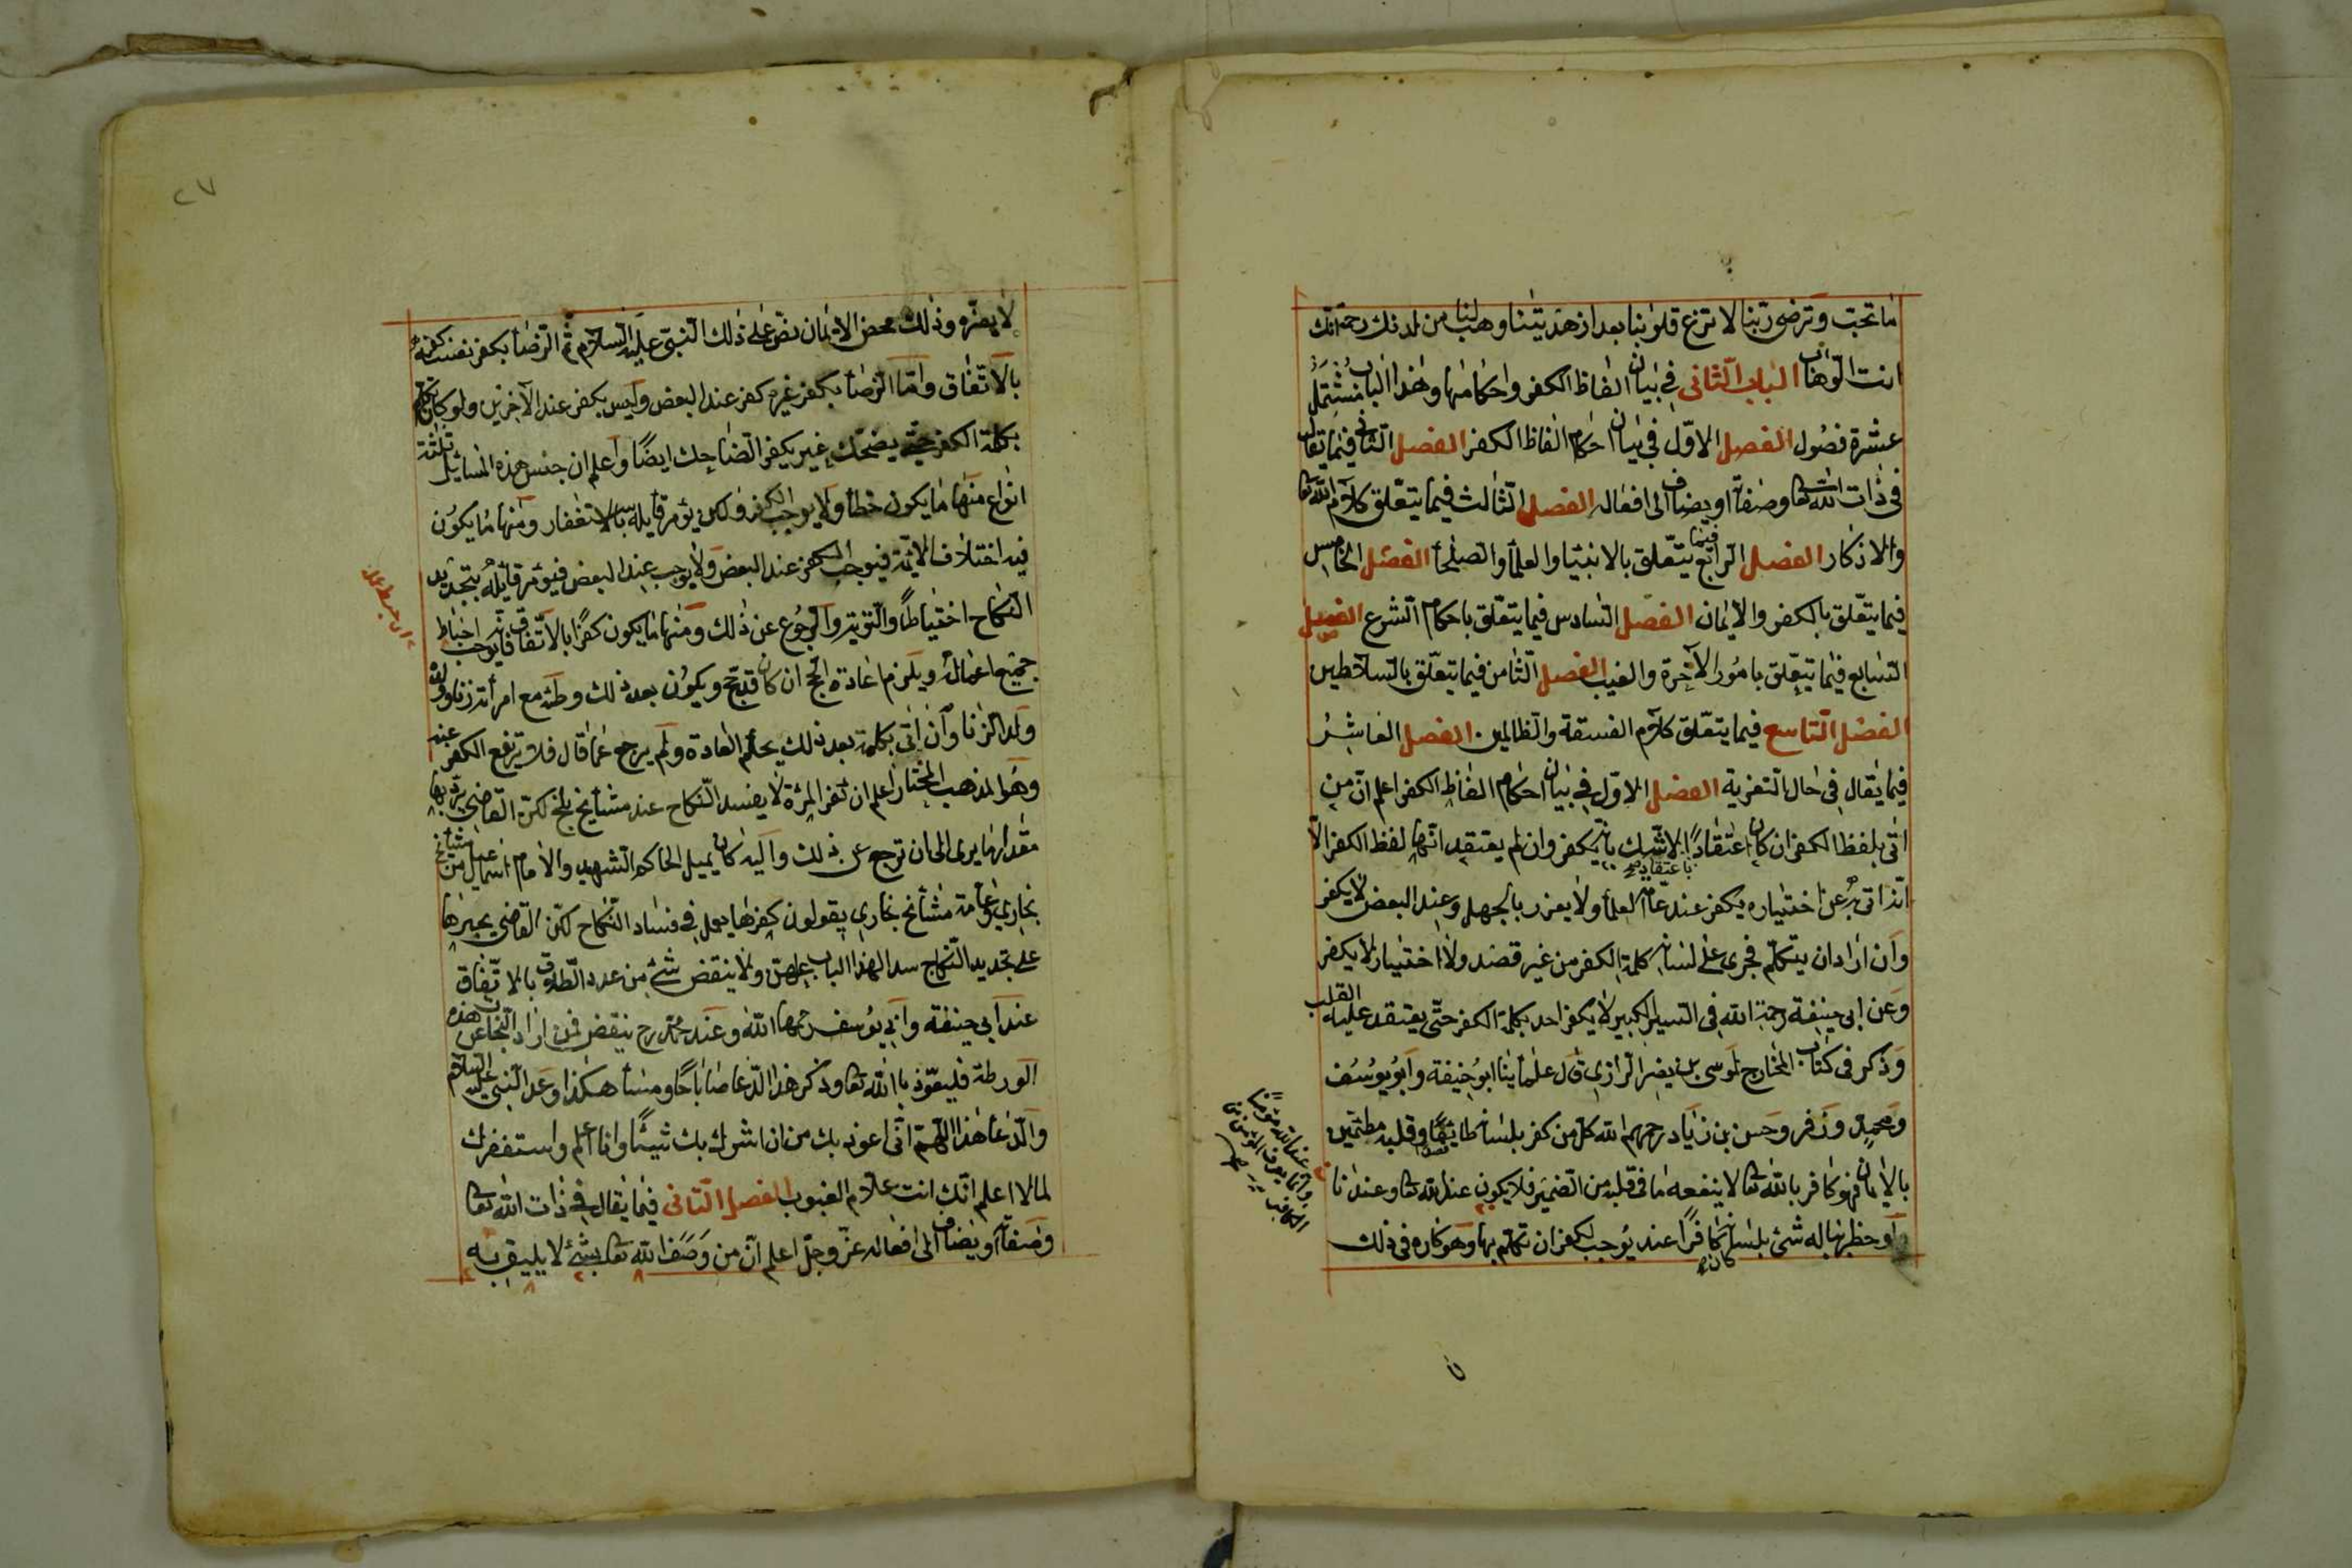 ما تحب وترضى ربنا لا تزغ قلوبنا بعد اذ هديتنا وهب لنا من لدنك رحمة انك
انت الوهاب الباب الثانى فى بيان الفاظ الكفر واحكامها وهذا الباب مشتمل
عشرة فصول الفصل الاول فى بيان احكام الفاظ الكفر الفصل الثانى فيما يقال
فى ذات الله تعا وصفاته او يضاف الى افعاله الفصل الثالث فيما يتعلق كلام الله تعا
والاذكار الفصل الرابع فيما يتعلق بالانبياء والعلماء والصلحاء الفصل الخامس
فيما يتعلق بالكفر والايمان الفصل السادس فيما يتعلق باحكام الشرع الفصل
السابع فيما يتعلق بامور الآخرة والغيب الفصل الثامن فيما يتعلق بالسلاطين
الفصل التاسع فيما يتعلق كلام الفسقة والظالمين الفصل العاشر
فيما يقال فى حال التعزية الفصل الاول فى بيان احكام الفاظ الكفر اعلم ان من
اتى بلفظ الكفر ان كان اعتقادًا لا شك بانه يكفر وان لم يعتقد انها لفظ الكفر الا
باعتقاده صح
انه اتى به عن اختياره يكفر عند عامة العلماء ولا يعزر بالجهل وعند البعض لا يكفر
وان اراد ان يتكلم فجرى على لسانه كلمة الكفر من غير قصد ولا اختيار لا يكفر
وعن ابى حنيفة رحمة الله فى السير الكبير لا يكفر احد بكلمة الكفر حتى يعتقد عليه القلب
وذكر فى كتاب المخارج لموسى بن نصر الرازى قال علمائنا ابو حنيفة وابو يوسف
ومحمد وزفر وحسن بن زياد رحمهم الله كل من كفر بلسانه طايعًا وقلبه مطئمين
بالايمان فهو كافر بالله تعا لا ينفعه ما فى قلبه من الضمير فلا يكون عند الله تعا وعندنا
او خطر بباله شئ بلسانه كافرًا عند يوجب الكفر ان تكلم بها وهو كاره فى ذلك
كان صح
لا يضره وذلك محض الايمان نص على ذلك النبى عليه السلام ثم الرضا بكفر نفسه كفر
بالاتفاق واما الرضا بكفر غيره كفر عند البعض وليس يكفر عند الآخرين ولو كان تكلم
بكلمة الكفر حتى يضحك غيره يكفر الضاحك ايضًا واعلم ان جنس هذه المسائل ثلثة
انواع منها ما يكون خطأ ولا يوجب الكفر ولكن يؤمر قايله بالاستغفار ومنها ما يكون
فيه اختلاف الائمة فيوجب الكفر عند البعض ولا يوجب عند البعض فيؤمر قائله بتجديد
النكاح احتياطًا والتوبة والرجوع عن ذلك ومنها ما يكون كفرًا بالاتفاق فانه يوجب احباط
جميع اعماله ويلزم اعادة الحج ان كان قد حج ويكون بعد ذلك وطئه مع امرأته زنا وولده
ولد الزنا وان اتى بكلمة بعد ذلك بحكم العادة ولم يرجع عما قال فلا يرتفع الكفر عنه
وهو المذهب المختار اعلم ان كفر المرئة لا يفسد النكاح عند مشايخ بلخ لكن القاضى يؤدبها
مقدار ما يرى الى ان ترجع عن ذلك واليه كان يميل الحاكم الشهيد والامام اسمعيل من مشايخ
بخارى وعامة مشايخ بخارى يقولون كفرها يعمل فى فساد النكاح لكن القاضى يجبرها
على تجديد النكاح سدا لهذا الباب عليهن ولا ينقض شئ من عدد الطلاق بالاتفاق
عند ابى حنيفة وابى يوسف رحمهما الله وعند محمد رح ينقض فمن اراد النجاة عن هذه
الورطة فليعوذ بالله تعا وذكر هذا الدعا صباحًا ومساء هكذا وعد النبى عليه السلام
والدعا هذا اللهم انى اعوذ بك من ان اشرك بك شيئا وانا اعلم واستغفرك
لما لا اعلم انك انت علام الغيوب الفصل الثانى فيما يقال فى ذات الله تعا
وصفاته او يضاف الى افعاله عز وجل اعلم ان من وصف الله تعا بشئ لا يليق به